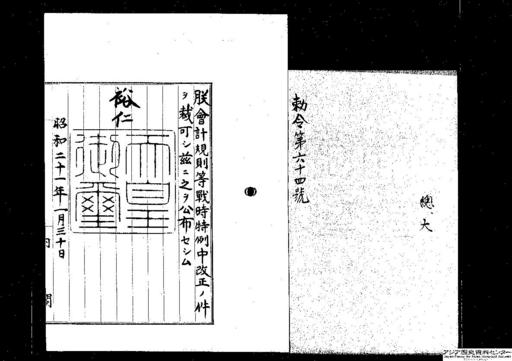 勅令第六十四號
總、大
朕會計規則等戰時特例中改正ノ件
ヲ裁可シ茲ニ之ヲ公布セシム
裕仁
天皇
御璽
昭和二十一年一月三十日
内閣
アジア歴史資料センター